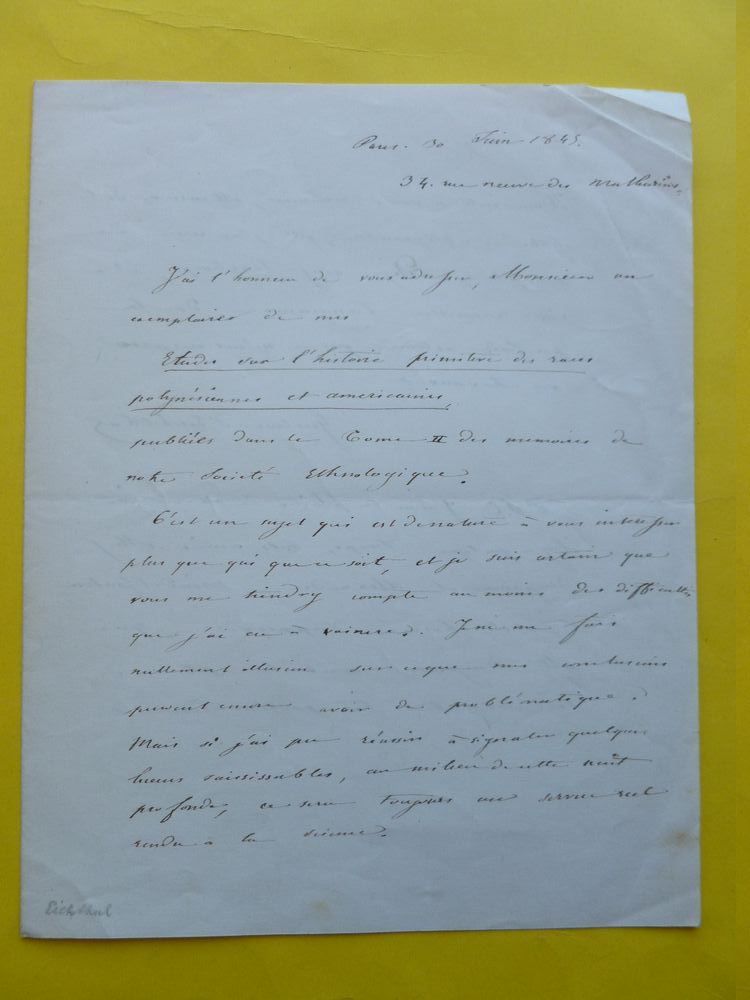 Paris. 30 Juin 1845.
34. rue neuve des Mathurins.
J'ai l'honneur de vous adresser, Monsieur un
exemplaire de mes
Etudes sur l'histoire primitive des races
polynésiennes et américaines,
publiées dans le Tome II des mémoires de
notre Société Ethnologique.
C'est un sujet qui est de nature à vous intéresser
plus que qui que ce soit, et je suis certain que
vous me tiendrez compte au moins des difficultés
que j'ai eu à vaincre. Je ne me fais
nullement illusion sur ce que mes conclusions
peuvent encore avoir de problématique.
Mais si j'ai pu réussir à signaler quelques
lueurs saisissables, au milieu de cette nuit
profonde, ce sera toujours un service réel
rendu à la science.
Eichthal